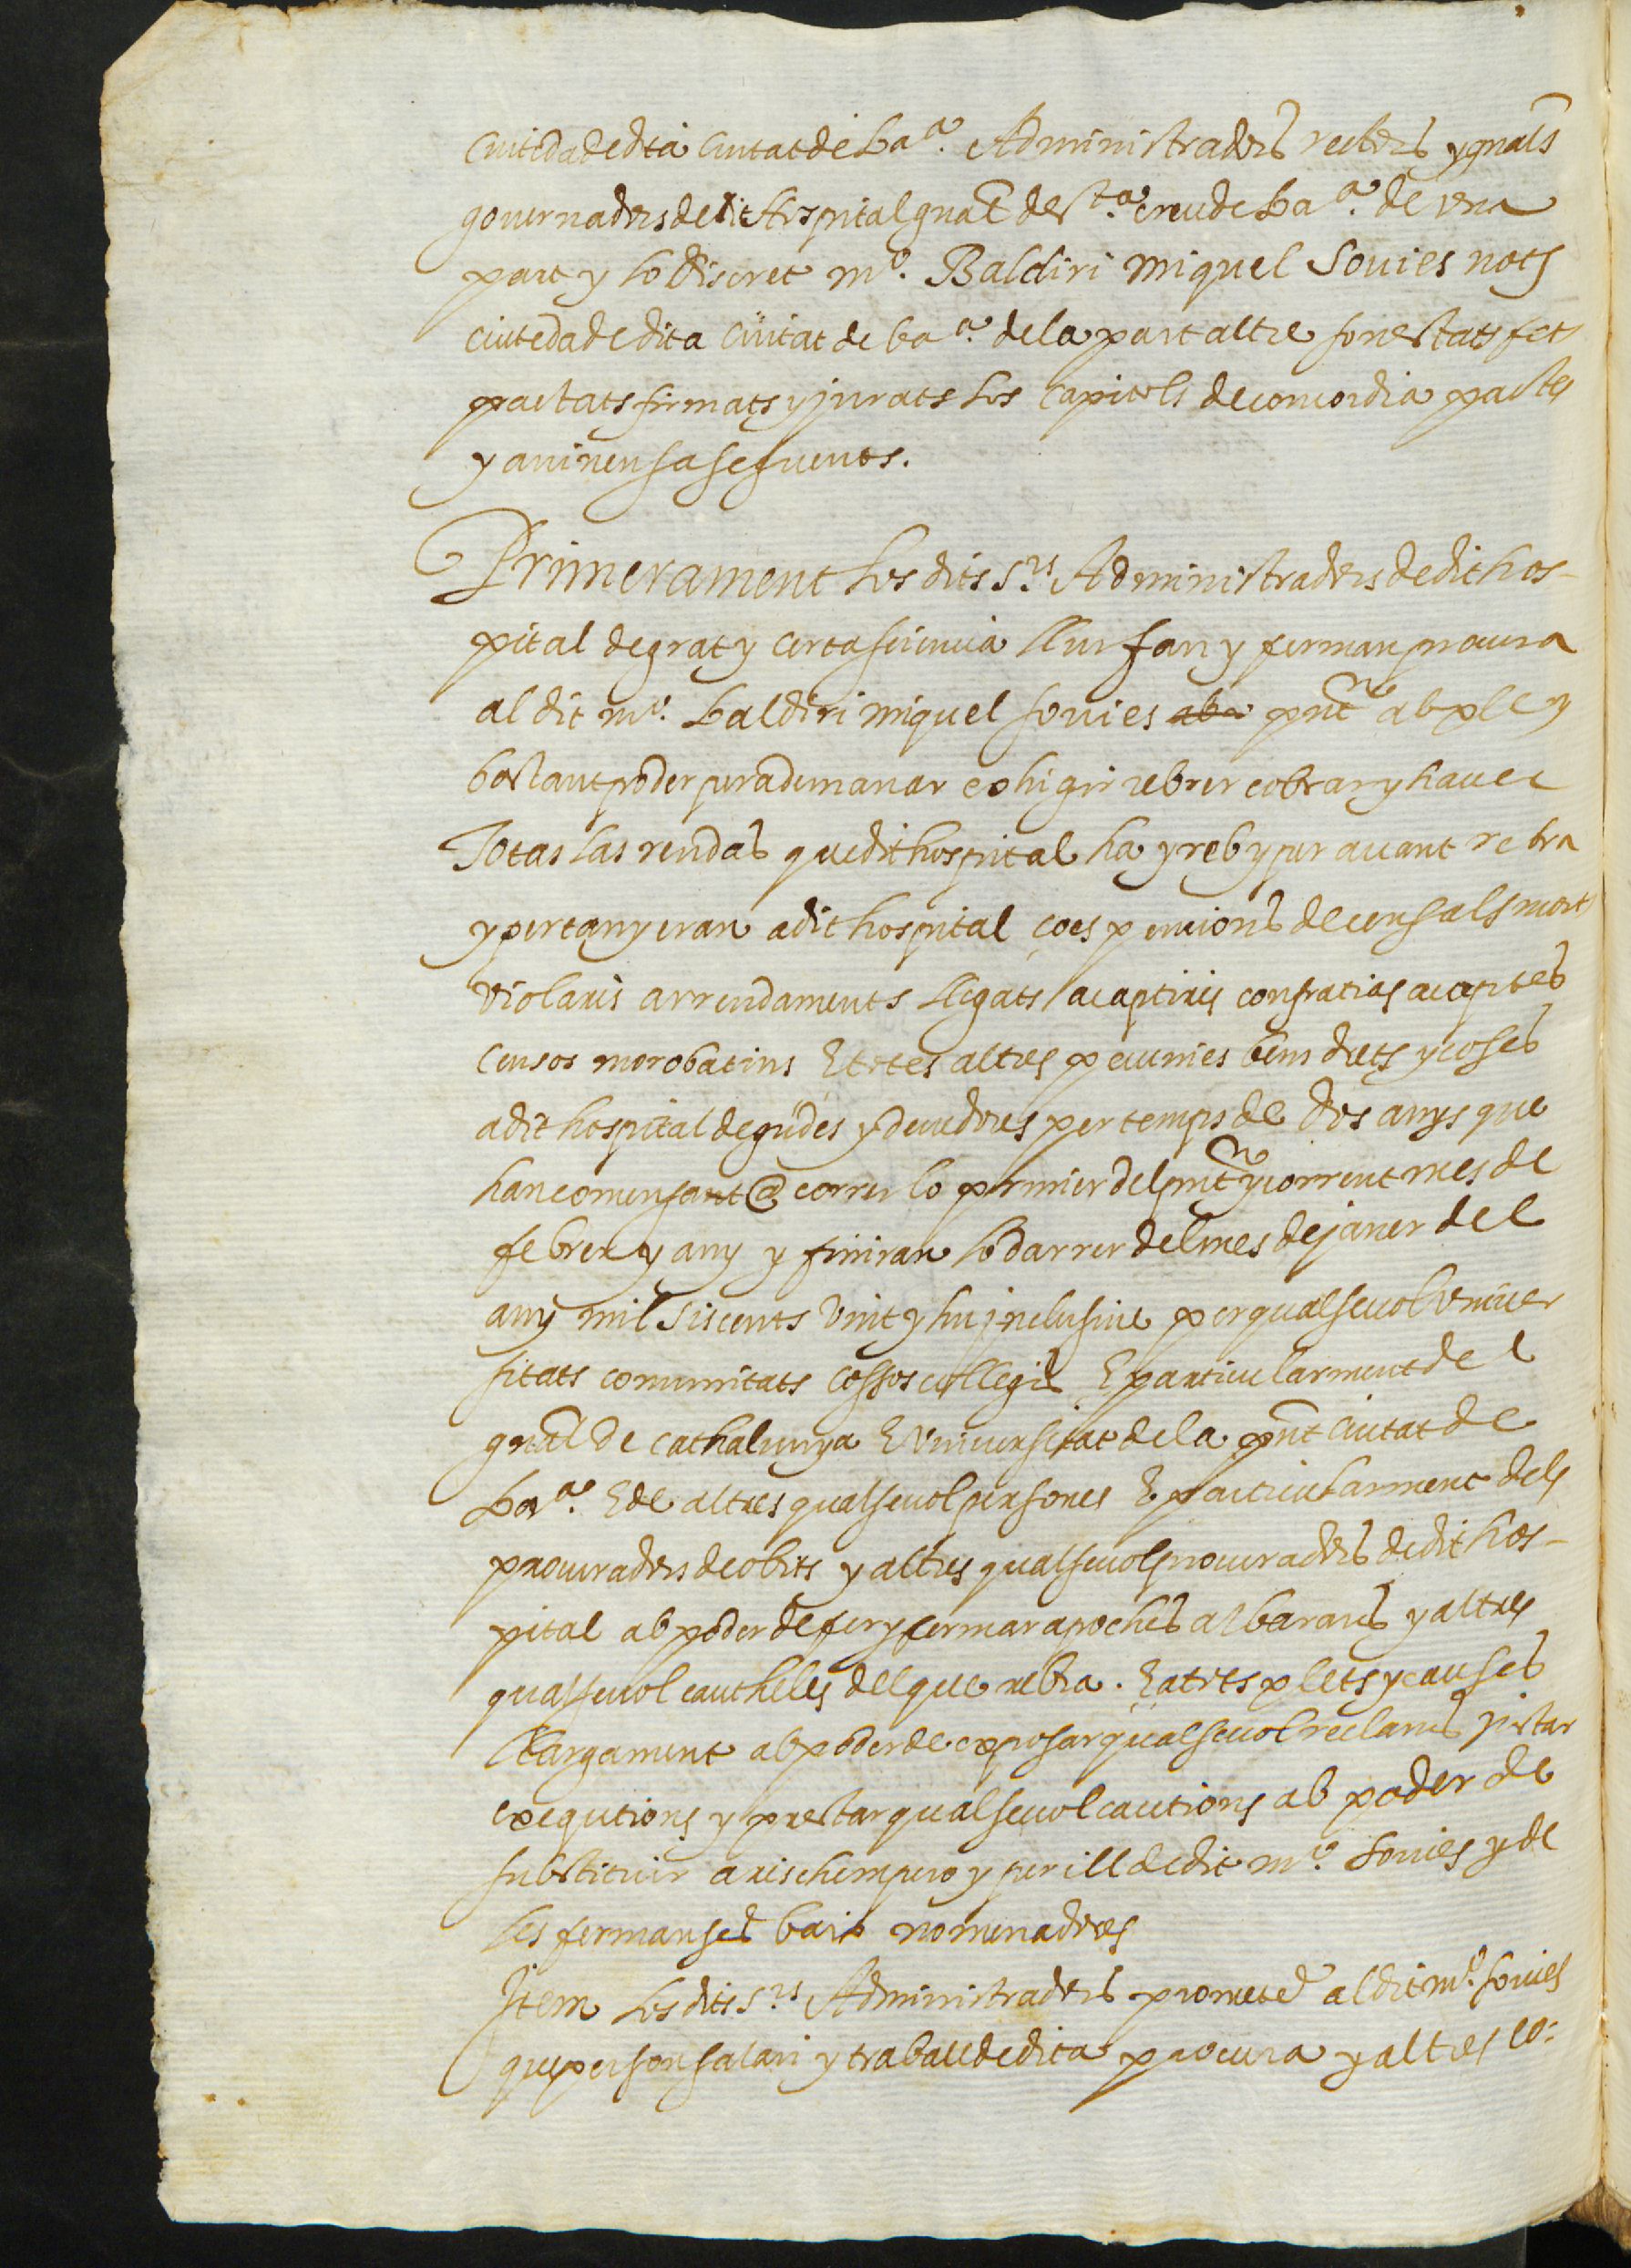 ciutedà de dita ciutat de Bar.ᵃ Administradors rectors y gnals
gouernadors de dit Hospital gnal de s.ᵗᵃ creu de Bar.ᵃ de vna
part y lo discret mº. Baldiri Miquel Souies notj
ciutedà de dita ciutat de bar.ᵃ de la part altre son estats fets
pactats firmats y jurats los capitols de concordia pactes
y auinensa seguents.
Primerament los dits s.ʳˢ Administradors de dit hos-
pital de grat y certa sciencia llur fan y ferman procura
al dit mº. Baldiri miquel souies pnt ab ple y
bastant poder per a demanar exhigir rebrer cobrar y hauer
Totas las rendas que dit hospital ha y reb y per auant rebra
y pertanyeran a dit hospital ço es pencions de censals morts
violaris arrendaments llegats acaptiris confrarias acaptes
censos morobatins E totes altres pecunies bens drets y coses
a dit hospital degudes y deuedores per temps de dos anys que
han comensant @ correr lo primer del pnt y corrent mes de
febrer y any y finiran lo darrer del mes de janer del
any mil siscents vint y huj inclusiue per qualseuol vniuer
sitats comunitats cossos collegis E particularment del
gnal de cathalunya E vniuersitat de la pnt ciutat de
Bar.ᵃ E de altres qualseuol persones E particularment dels
procuradors de obits y altres qualseuol procuradors de dit hos-
pital ab poder de fer y fermar apoches albarans y altres
qualseuol cautheles del que rebra. E a tots plets y causes
llargament ab poder de exposar qualseuol reclams instar
exequtions y prestar qualseuol cautions ab poder de
substituir a risch empero y perill de dit mº. souies y de
les fermanses baix nomenadores
Item los dits s.ʳˢ Administradors prometen al dit mº. souies
que per son salari y traball de dita procura y altres co: